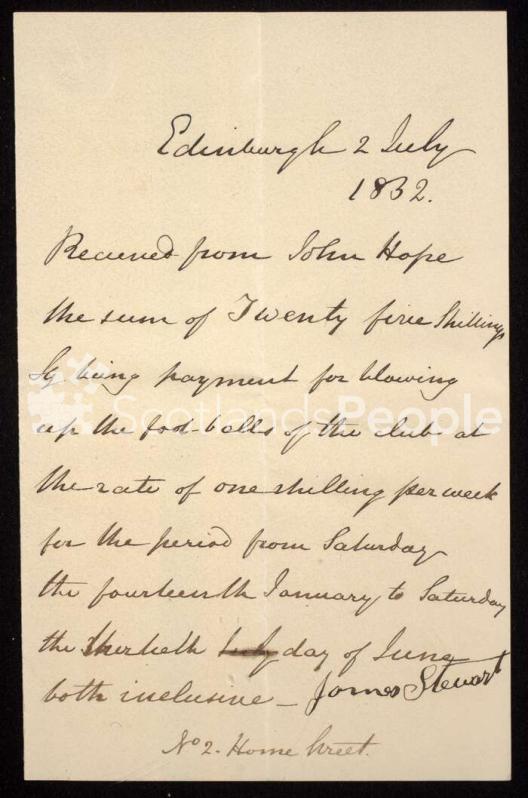 Edinburgh 2 July
1832.
Received from John Hope
the sum of Twenty five Shillings
Sg being payment for blowing
up the foot-balls of the club at
ScotlandsPeople
the rate of one shilling per week
for the period from Saturday
the fourteenth January to Saturday
the thirtieth July day of June
both inclusive - James Stewart
No 2. Home Street.